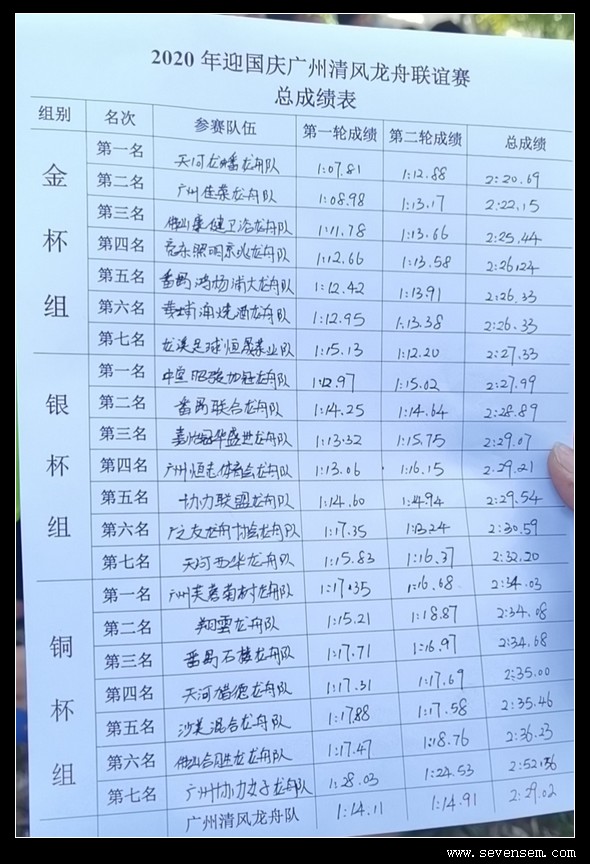 2020 年迎国庆广州清风龙舟联谊赛
总成绩表
组别 名次 参赛队伍 第一轮成绩 第二轮成绩 总成绩
金杯组
第一名 天河龙蟠龙舟队 1:07.81 1:12.88 2:20.69
第二名 广州佳荣龙舟队 1:08.98 1:13.17 2:22.15
第三名 佛山康健卫浴龙舟队 1:11.78 1:13.66 2:25.44
第四名 龙舟队 1:12.66 1:13.58 2:26.24
第五名 番禺鸿杨浦大龙舟队 1:12.42 1:13.91 2:26.33
第六名 龙舟队 1:12.95 1:13.38 2:26.33
第七名 1:15.13 1:12.20 2:27.33
银杯组
第一名 龙舟队 1:12.97 1:15.02 2:27.99
第二名 番禺联合龙舟队 1:14.25 1:14.64 2:28.89
第三名 龙舟队 1:13.32 1:15.75 2:29.07
第四名 龙舟队 1:13.06 1:16.15 2.29.21
第五名 协力联盟龙舟队 1:14.60 1:14.94 2:29.54
第六名 龙舟队 1:17.35 1:13.24 2:30.59
第七名 天河西华龙舟队 1:15.83 1:16.37 2:32.20
铜杯组
第一名 广州芙蓉南村龙舟队 1:17.35 1:16.68 2:34.03
第二名 翔雲龙舟队 1:15.21 1:18.87 2:34.08
第三名 番禺石楼龙舟队 1:17.71 1:16.97 2:34.68
第四名 天河猎德龙舟队 1:17.31 1:17.69 2:35.00
第五名 沙美混合龙舟队 1:17.88 1:17.58 2:35.46
第六名 佛山合胜龙龙舟队 1:17.47 1:18.76 2:36.23
第七名 广州协力女子龙舟队 1:28.03 1:24.53 2:52.36
广州清风龙舟队 1:14.11 1:14.91 2:29.02
www.sevensem.com